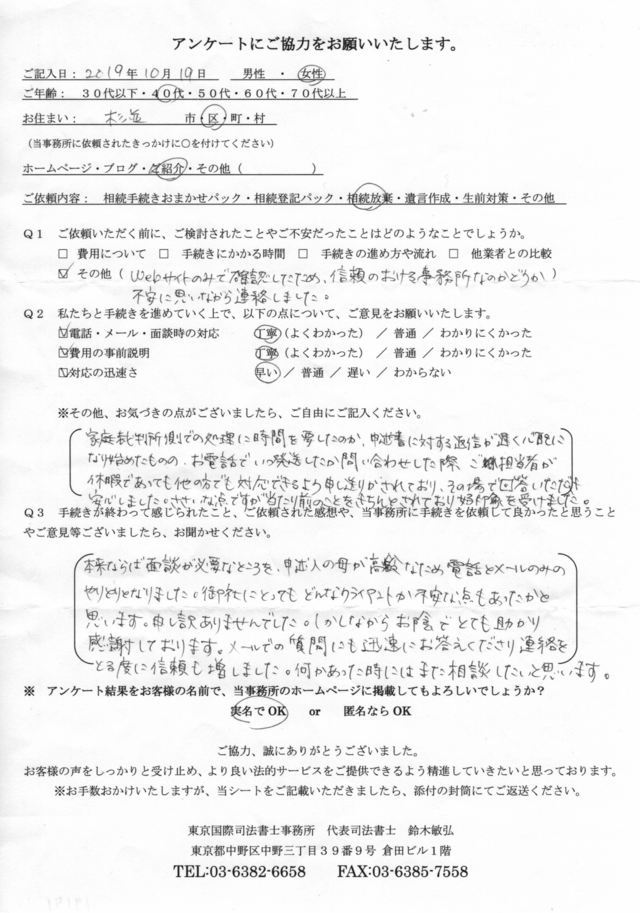 アンケートにご協力をお願いいたします。
ご記入日： 2019年 10月 19日　男性 ・ 女性
ご年齢： 30代以下・40代・50代・60代・70代以上
お住まい： 杉並 市・区・町・村
（当事務所に依頼されたきっかけに○を付けてください）
ホームページ・ブログ・ご紹介・その他（　　　　　）
ご依頼内容： 相続手続きおまかせパック・相続登記パック・相続放棄・遺言作成・生前対策・その他
Q1 ご依頼いただく前に、ご検討されたことやご不安だったことはどのようなことでしょうか。
□ 費用について □ 手続きにかかる時間 □ 手続きの進め方や流れ □ 他業者との比較
☑ その他（ Webサイトのみで確認したため、信頼のおける事務所なのかどうか ）
不安に思いながら連絡しました。
Q2 私たちと手続きを進めていく上で、以下の点について、ご意見をお願いいたします。
☑電話・メール・面談時の対応 丁寧（よくわかった） ／ 普通 ／ わかりにくかった
☑費用の事前説明 丁寧（よくわかった） ／ 普通 ／ わかりにくかった
☑対応の迅速さ 早い ／ 普通 ／ 遅い ／ わからない
※その他、お気づきの点がございましたら、ご自由にご記入ください。
家庭裁判所側での処理に時間を要したのか、申述書に対する返信が遅く心配に
なり始めたものの、お電話でいつ発送したか問い合わせした際、ご担当者が
休暇であっても他の方でも対応できるよう申し送りがされており、その場で回答いただき
安心しました。ささいな点ですが当たり前のことをきちんとされており好印象を受けました。
Q3 手続きが終わって感じられたこと、ご依頼された感想や、当事務所に手続きを依頼して良かったと思うこと
やご意見等ございましたら、お聞かせください。
本来ならば面談が必要なところを、申述人の母が高齢なため電話とメールのみの
やりとりとなりました。御社にとってもどんなクライアントか不安な点もあったかと
思います。申し訳ありませんでした。しかしながらお陰でとても助かり
感謝しております。メールでの質問にも迅速にお答えくださり連絡を
とる度に信頼も増しました。何かあった時にはまた相談したいと思います。
※ アンケート結果をお客様の名前で、当事務所のホームページに掲載してもよろしいでしょうか？
実名でOK　or　匿名ならOK
ご協力、誠にありがとうございました。
お客様の声をしっかりと受け止め、より良い法的サービスをご提供できるよう精進していきたいと思っております。
※お手数おかけいたしますが、当シートをご記載いただきましたら、添付の封筒にてご返送ください。
東京国際司法書士事務所　代表司法書士　鈴木敏弘
東京都中野区中野三丁目３９番９号 倉田ビル１階
TEL:03-6382-6658　FAX:03-6385-7558